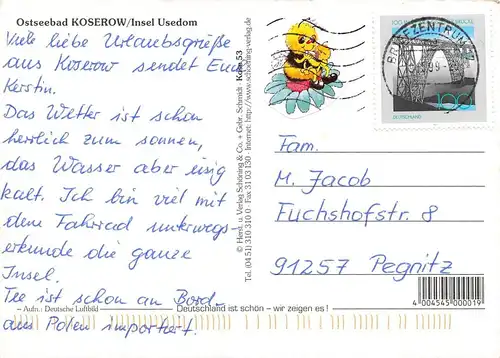 Ostseebad KOSEROW/Insel Usedom
Viele liebe Urlaubsgrüße
aus Koserow sendet Euch
Kerstin.
Das Wetter ist schon
herrlich zum sonnen,
das Wasser aber eisig
kalt. Ich bin viel mit
dem Fahrrad unterwegs
erkunde die ganze
Insel.
Tee ist schon an Bord-
aus Polen importert.
Aufn.: Deutsche Luftbild
Deutschland ist schön – wir zeigen es!
© Herst. u. Verlag Schöning & Co. + Gebr. Schmidt
Tel. (04 51) 310 310 0 · Fax 31 03 130 · Internet: http://www.schoening-verlag.de
Kose 53
BRIEFZENTRUM
100
DEUTSCHLAND
Fam.
M. Jacob
Fuchshofstr. 8
91257 Pegnitz
4 004545 000019